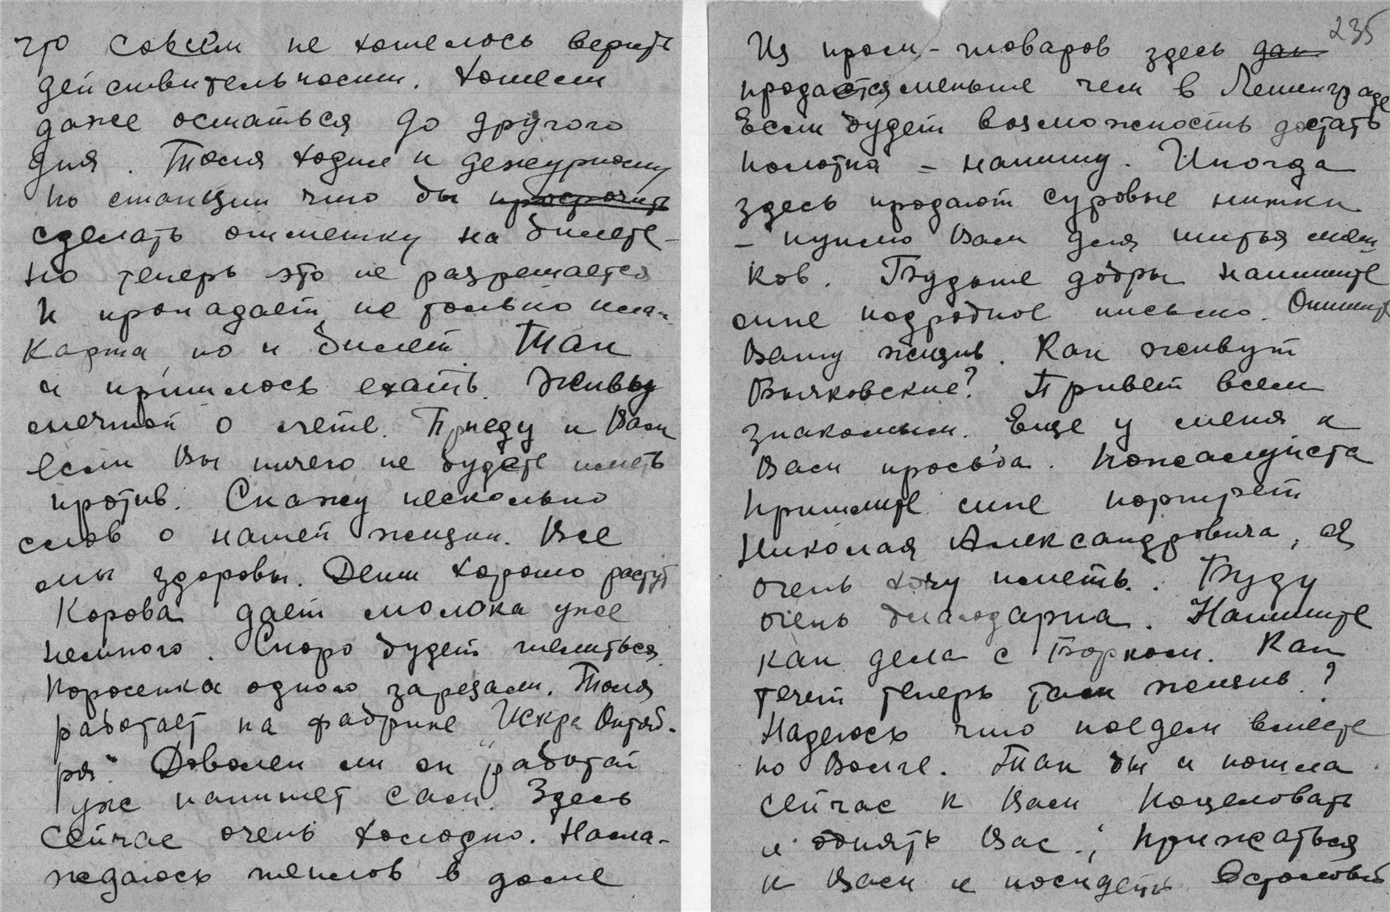 что совсем не хотелось верить
действительности. Хотели
даже остаться до другого
дня. Толя ходил к дежурному
по станции что бы просрочить
сделать отметку на билете -
но теперь это не разрешается
и пропадает не только плац-
карта но и билет. Так
и пришлось ехать. Живу
мечтой о лете. Приеду к Вам
если Вы ничего не будете иметь
против. Скажу несколько
слов о нашей жизни. Все
мы здоровы. Дети хорошо растут
Корова дает молока уже
немного. Скоро будет телиться.
Поросенка одного зарезали. Толя
работает на фабрике "Искра Октяб-
ря". Доволен ли он работой
уже напишет сам. Здесь
сейчас очень холодно. Насла-
ждаюсь теплом в доме
235
Из пром-товаров здесь
продается меньше чем в Ленинграде
Если будет возможность достать
полотна - напишу. Иногда
здесь продают суровые нитки
- куплю Вам для шитья меш
ков. Будьте добры напишите
мне подробное письмо. Опишите
Вашу жизнь. Как живут
Вычковские? Привет всем
знакомым. Еще у меня к
Вам просьба. Пожалуйста
пришлите мне портрет
Николая Александровича, я
очень хочу иметь. Буду
очень благодарна. Напишите
как дела с Борком. Как
течет теперь там жизнь?
Надеюсь что поедем вместе
по Волге. Так бы и пошла
сейчас к Вам поцеловать
и обнять Вас; прижаться
к Вам и посидеть в столовой